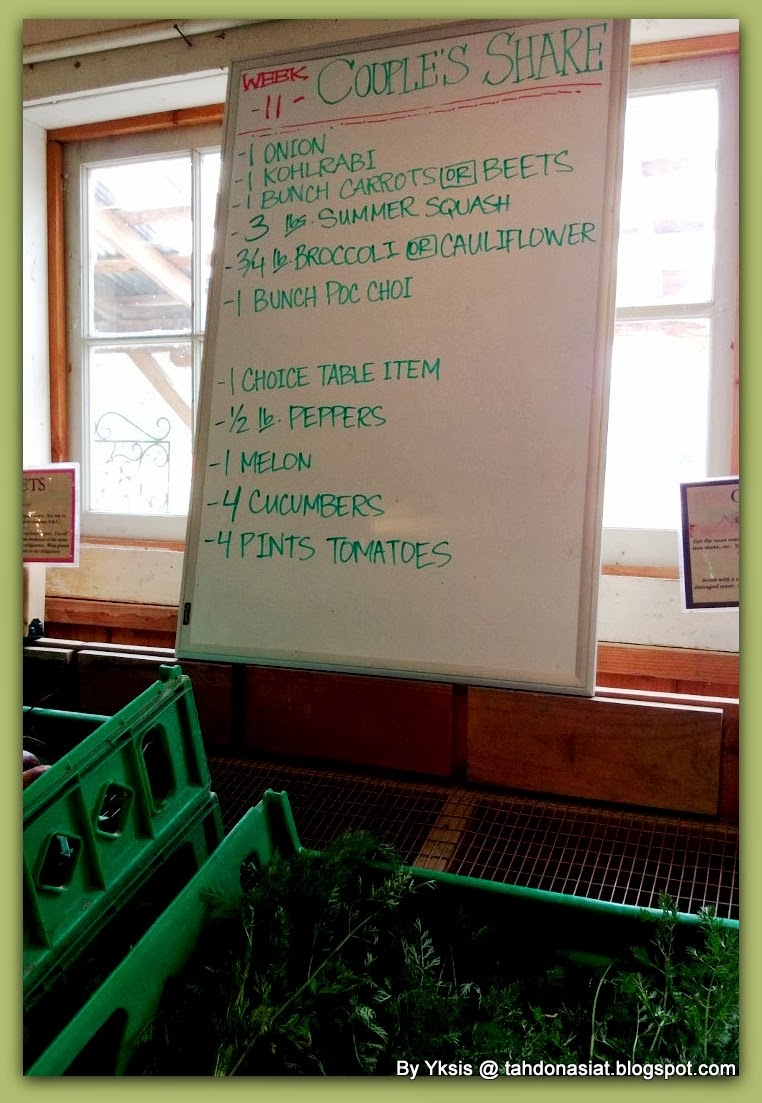 WEEK COUPLE'S SHARE
- 11 -
- 1 ONION
- 1 KOHLRABI
- 1 BUNCH CARROTS OR BEETS
- 3 lbs. SUMMER SQUASH
- 3/4 lb. BROCCOLI OR CAULIFLOWER
- 1 BUNCH POC CHOI
- 1 CHOICE TABLE ITEM
- 1/2 lb. PEPPERS
- 1 MELON
- 4 CUCUMBERS
- 4 PINTS TOMATOES
ETS
Get the most
Scrub with a
By Yksis @ tahdonasiat.blogspot.com